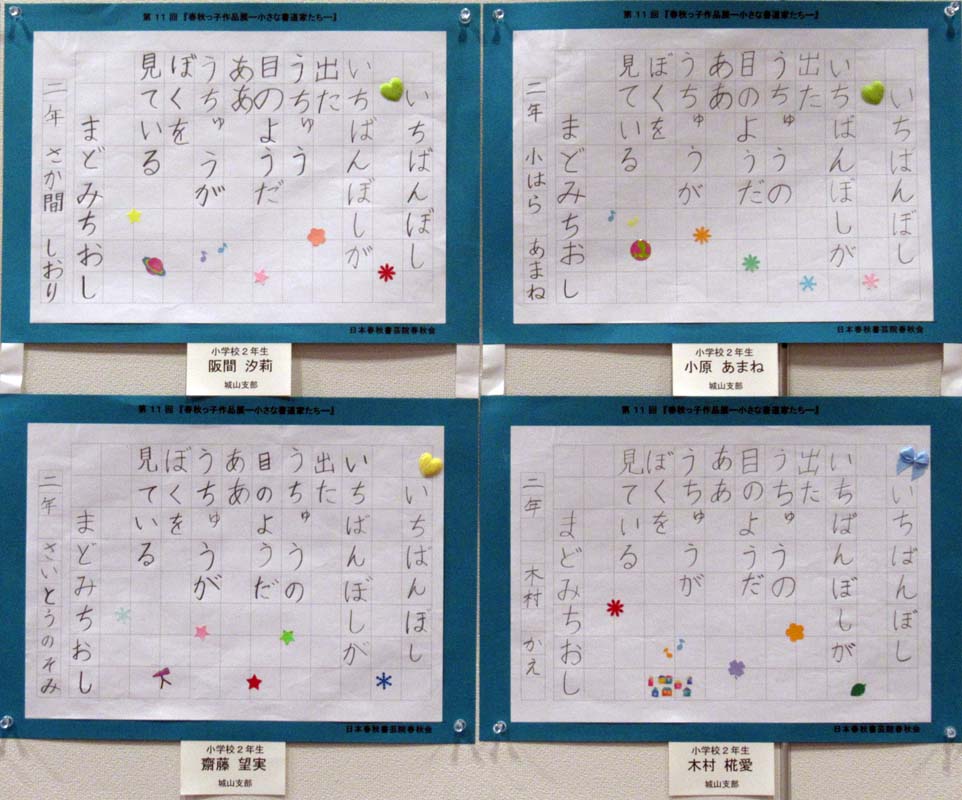 第11回『春秋っ子作品展ー小さな書道家たちー』
いちばんぼし
いちばんぼしが
出た
うちゅう
目のようだ
ああ
うちゅうが
ぼくを
見ている
まどみちおし
二年 さか間 しおり
日本春秋書芸院春秋会
小学校2年生
阪間 汐莉
城山支部
第11回『春秋っ子作品展ー小さな書道家たちー』
いちばんぼし
いちばんぼしが
出た
うちゅうの
目のようだ
ああ
うちゅうが
ぼくを
見ている
まどみちおし
二年 小はら あまね
日本春秋書芸院春秋会
小学校2年生
小原 あまね
城山支部
第11回『春秋っ子作品展ー小さな書道家たちー』
いちばんぼし
いちばんぼしが
出た
うちゅうの
目のようだ
ああ
うちゅうが
ぼくを
見ている
まどみちおし
二年 さいとうのぞみ
日本春秋書芸院春秋会
小学校2年生
齋藤 望実
城山支部
第11回『春秋っ子作品展ー小さな書道家たちー』
いちばんぼし
いちばんぼしが
出た
うちゅうの
目のようだ
ああ
うちゅうが
ぼくを
見ている
まどみちおし
二年 木村 かえ
日本春秋書芸院春秋会
小学校2年生
木村 椛愛
城山支部